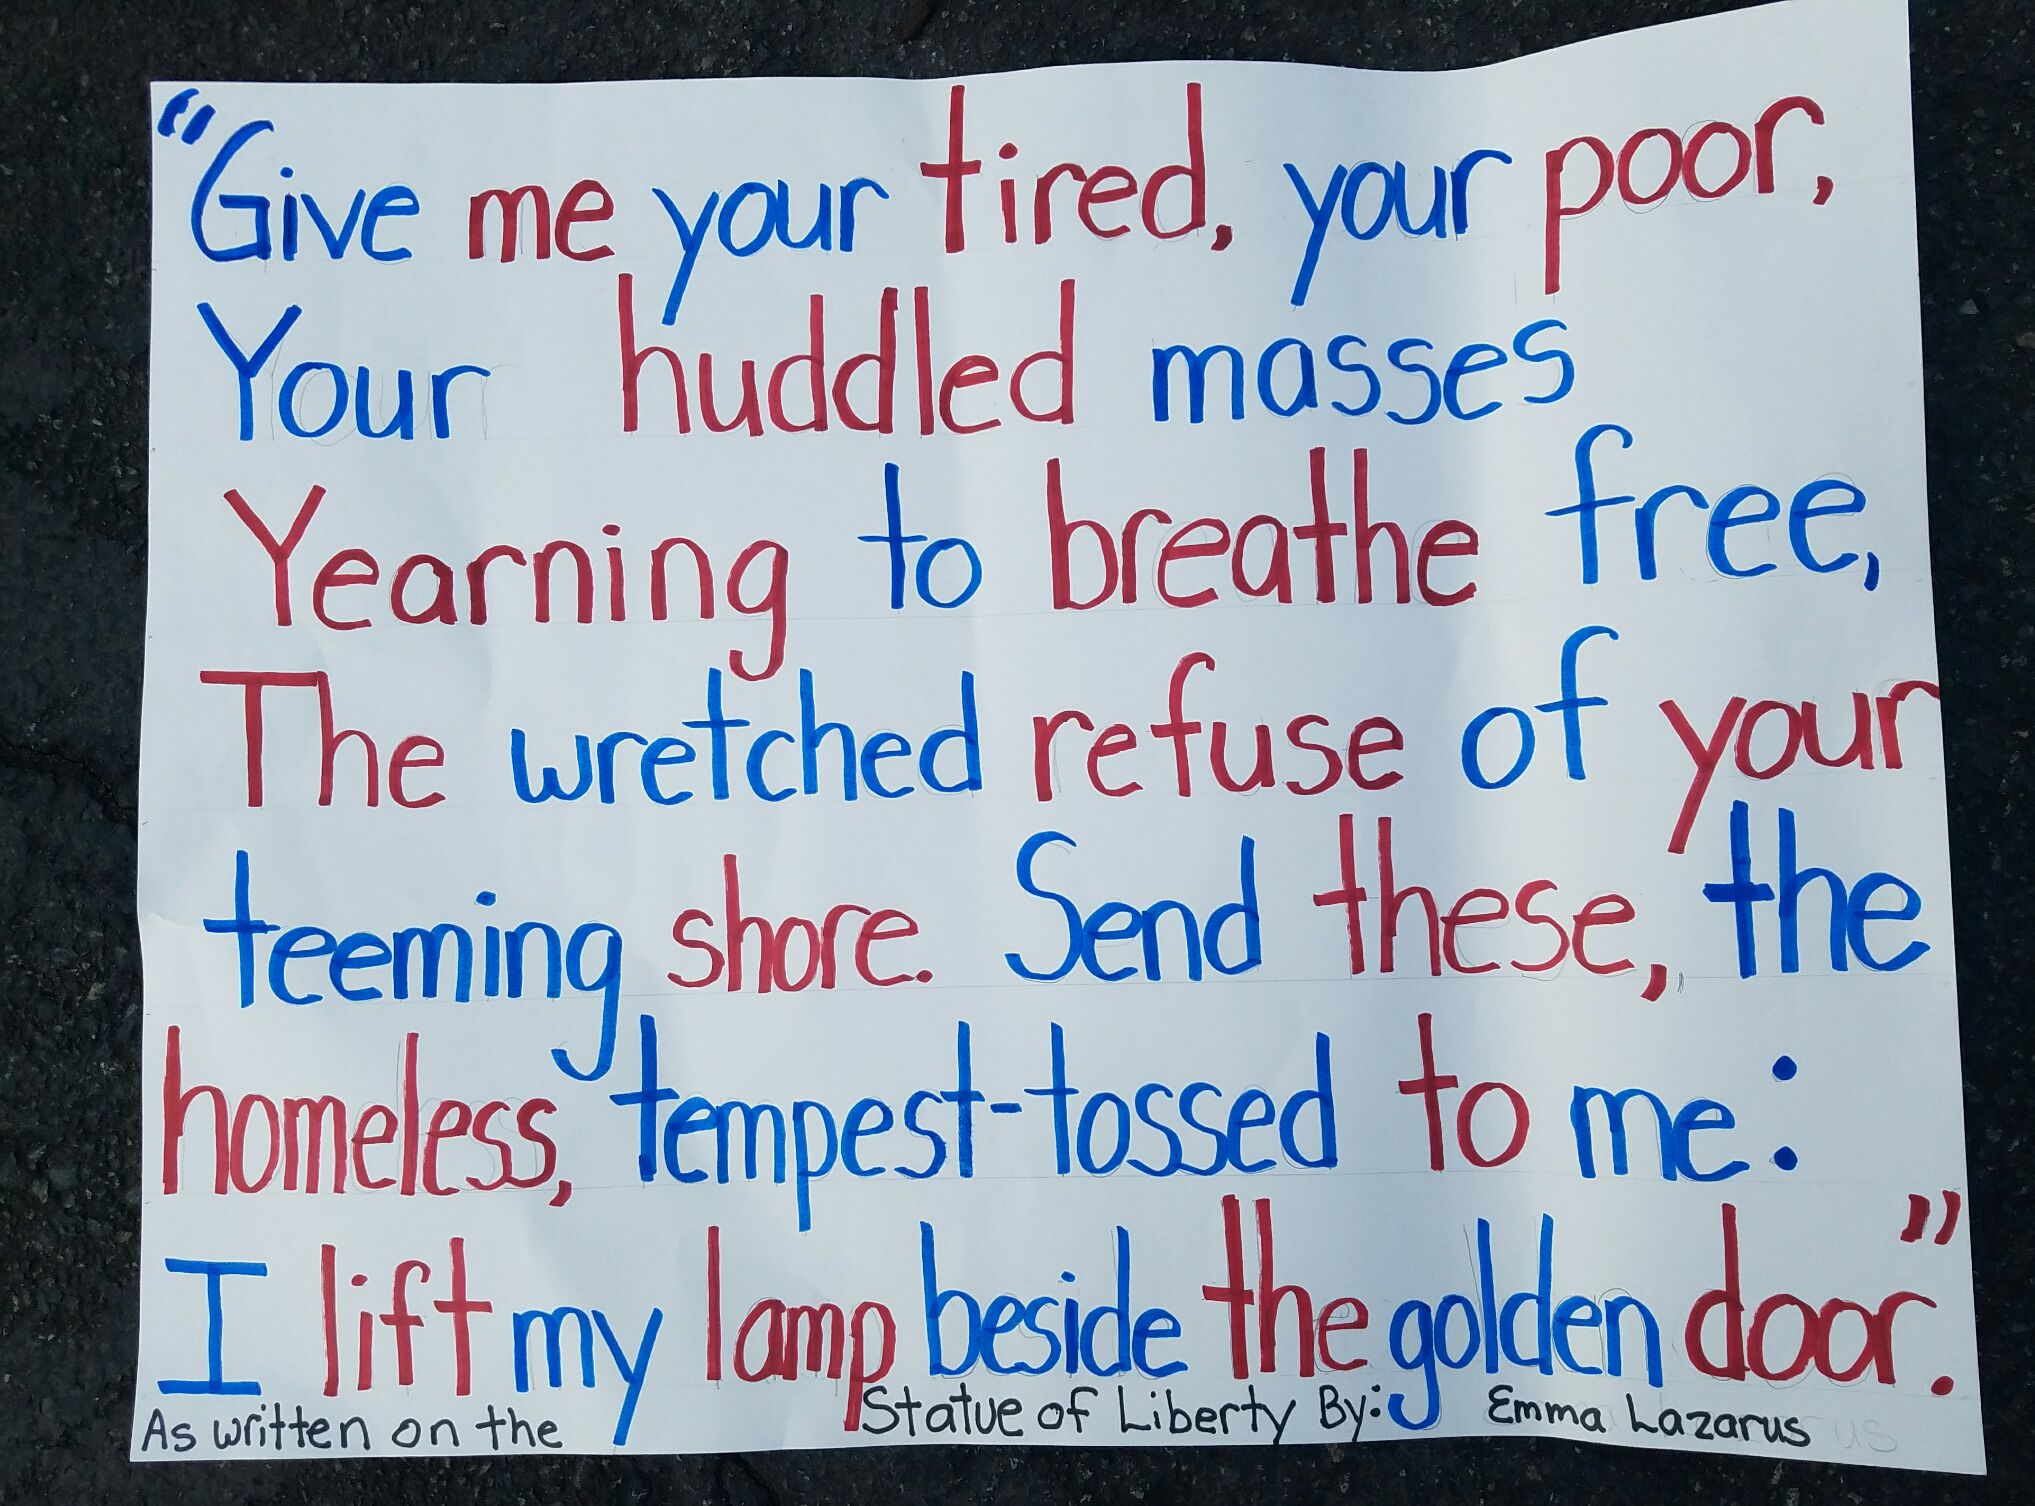 "Give me your tired, your poor,
Your huddled masses
Yearning to breathe free,
The wretched refuse of your
teeming shore. Send these, the
homeless, tempest-tossed to me:
I lift my lamp beside the golden door."
As written on the Statue of Liberty By: Emma Lazarus